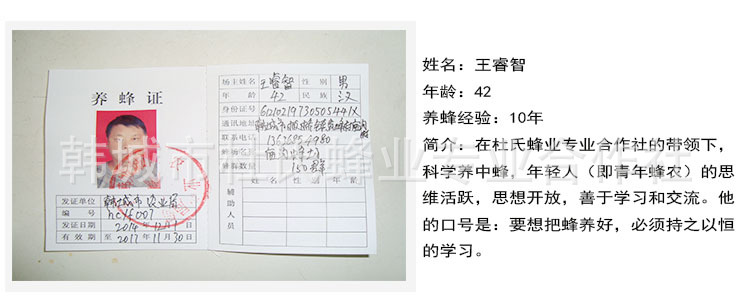 养蜂证
发证单位 韩城市农业局
编号 hcyf007
发证日期 2014年12月1日
有效期至 2017年11月30日
场主姓名 王睿智 性别 男
年龄 42 民族 汉
身份证号
通讯地址
联系电话
蜂场名称
蜂群数量 150群
姓名 性别 年龄
辅助人员
韩城市杜氏蜂业专业合作社
姓名：王睿智
年龄：42
养蜂经验：10年
简介：在杜氏蜂业专业合作社的带领下，
科学养中蜂，年轻人（即青年蜂农）的思
维活跃，思想开放，善于学习和交流。他
的口号是：要想把蜂养好，必须持之以恒
的学习。